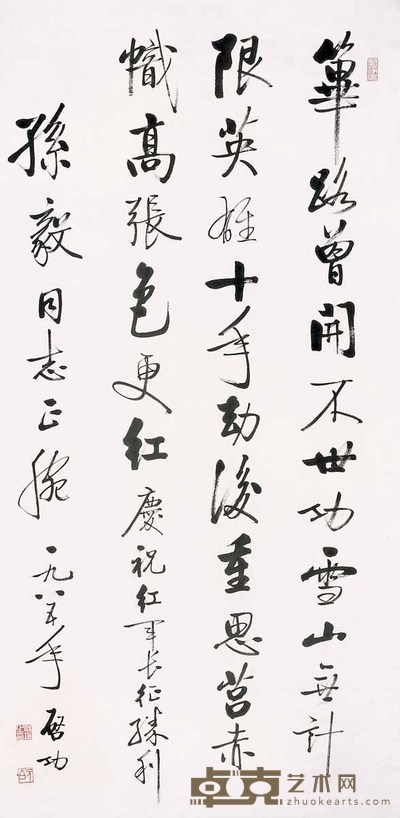 篳路曾開不世功雪山無計
限英雄十年劫後重思莒赤
幟高張色更紅慶祝紅軍長征勝利
孫毅同志正腕一九八五年啓功
卓克艺术网
zhuokearts.com